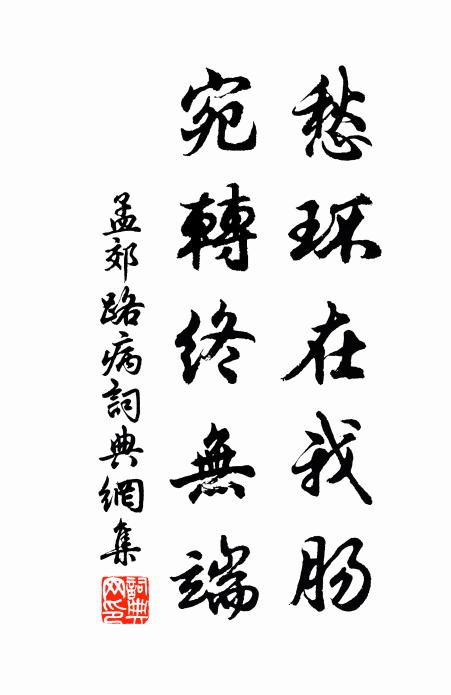 愁环在我肠
宛轉终無端
孟郊路病詞典網集
詞典网印